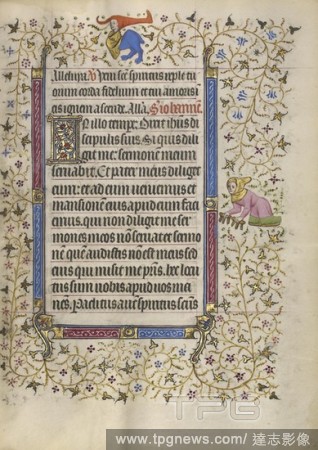 Alleluya V Veni scē spiritus reple tu
orum corda fidelium et tui amoris
 in eis ignem accende. Alla. S iohannē.
In illo tempr. Dixit ihūs di
scipulis suis. Si quis dili
git me sermonem meum
servabit. Et pater meus diliget
eum: et ad eum veniemus et
mansionem apud eum faci
emus. qui non diligit me ser
mones meos nō servat et sermo
nē quē audistis nō est meus sed
eius qui misit me pris. hec locu
tus sum vobis apud vos ma
nēs. Paclitus autē spiritus scūs
TPG
www.tpgnews.com/ 達志影像